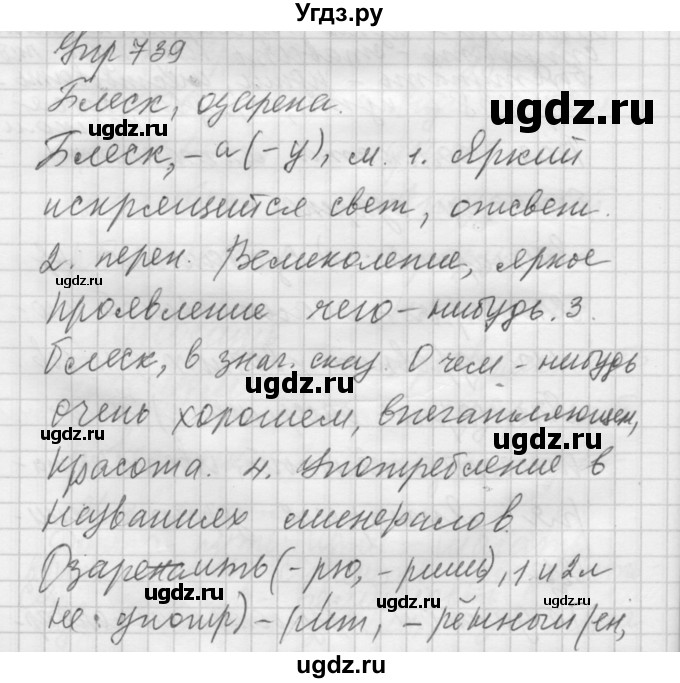 Угдз.ру
Упр 739
Блеск, озарена.
ugdz.ru
ugdz.ru
Блеск, -а (-у), м. 1. Яркий
искрящийся свет, отсвет.
2. перен. Великолепие, яркое
ugdz.ru
ugdz.ru
проявление чего-нибудь. 3.
блеск, в знач. сказ. О чем-нибудь
ugdz.ru
очень хорошем, впечатляющем,
ugdz.ru
красота. 4. Употребление в
названиях минералов.
ugdz.ru
(-рю, -ришь), 1 и 2 л
ugdz.ru
ugdz.ru
не употр) -рит, -рённый (ен,
ugdz.ru